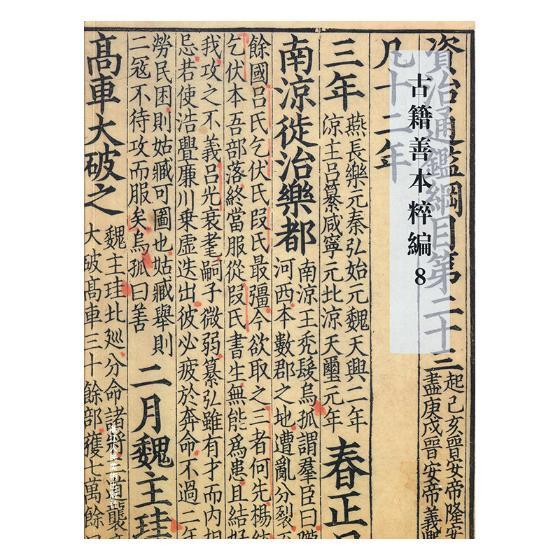 古籍善本粹編 8
資治通鑑綱目第二十三
起己亥晉安帝隆安
盡庚戌晉安帝義熙
凡十二年
三年
燕長樂元秦弘始元魏天興二年
涼主呂纂咸寧元北涼天璽元年
春正
南涼徙治樂都
南涼王禿髮烏孤謂羣臣曰
河西本數郡之地遭亂分裂
餘國呂氏乞伏氏段氏最彊今欲取之三者何先楊統
乞伏本吾部落終當服從段氏書生無能爲患且結好
我攻之不義呂光衰耄嗣子微弱纂弘雖有才而内相
忌若使浩亹廉川乗虛迭出彼必疲於奔命不過二年
勞民困則姑臧可圖也姑臧舉則
二冦不待攻而服矣烏孤曰善
二月魏主珪
髙車大破之
魏主珪北廵分命諸將襲
大破髙車三十餘部獲七萬餘口